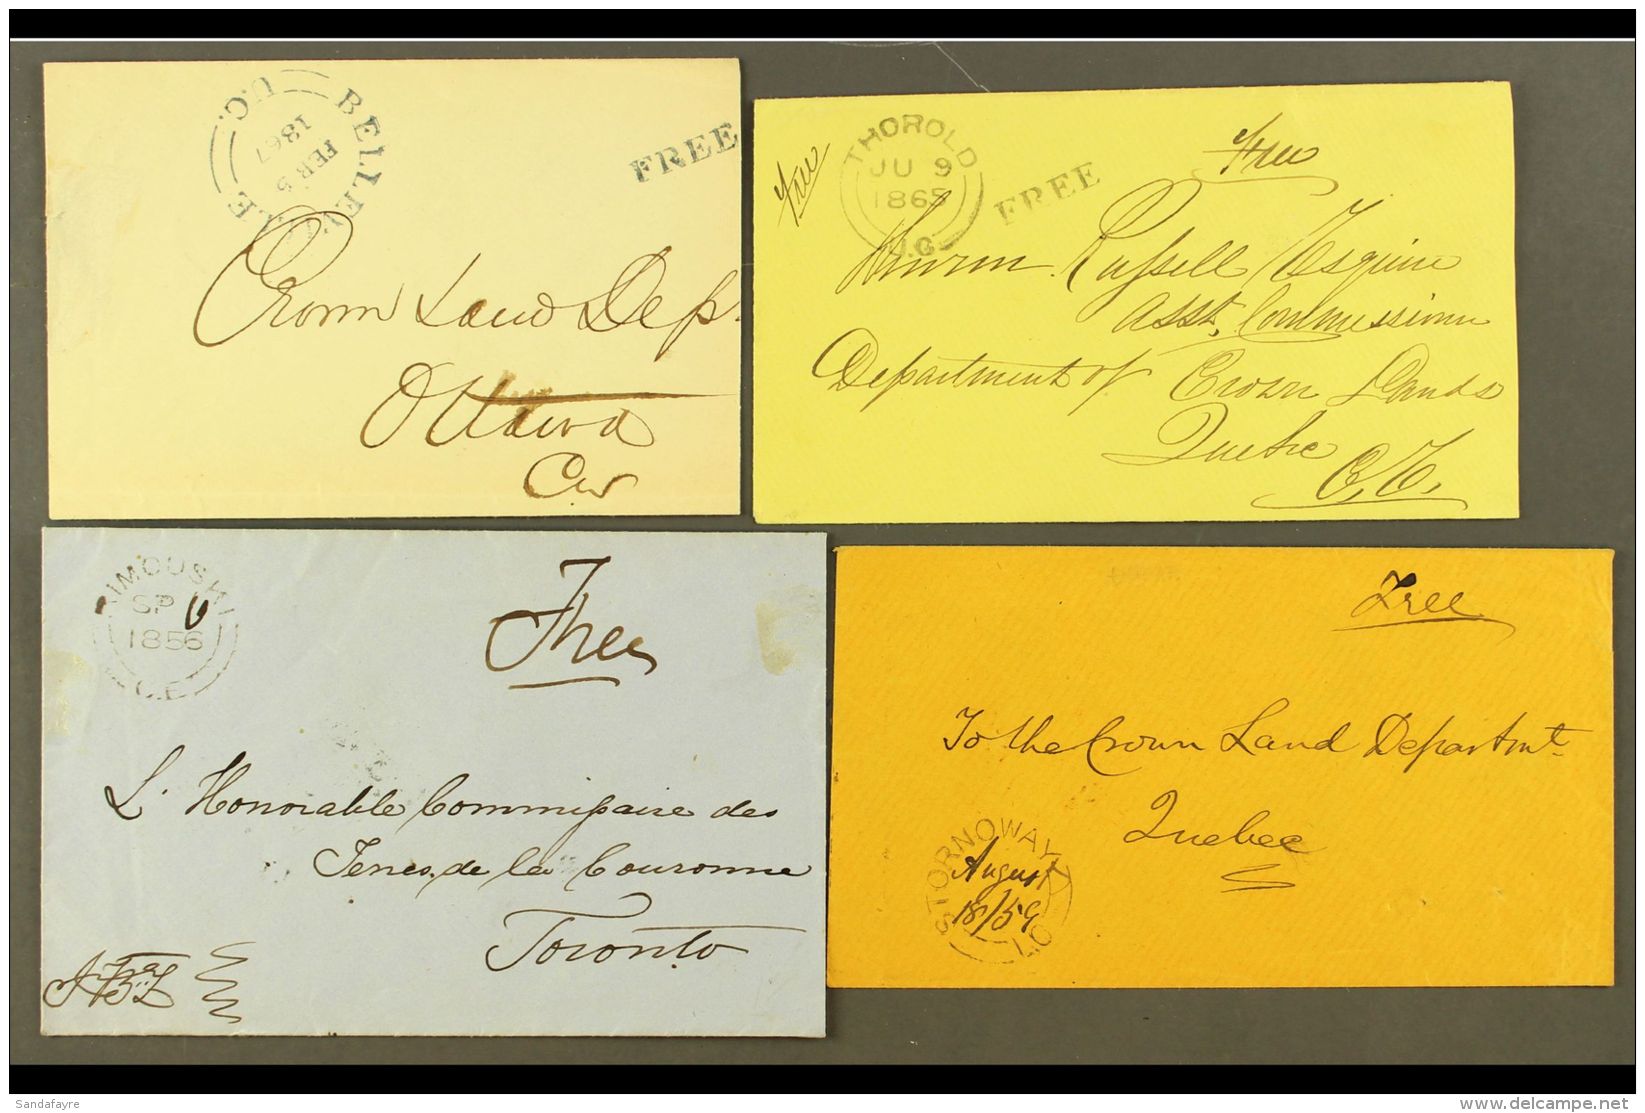 BELLEVILLE
U.C.
FEB 5
1867
FREE
Crown Land Dep.
Ottawa
CW
Free
THOROLD
JU 9
1865
U.C.
FREE
Free
Russell Esquire
Asst. Commissioner
Department of Crown Lands
Quebec
C.E.
RIMOUSKI
SP 6
1856
C.E.
Free
L'Honorable Commissaire des
Terres de la Couronne
Toronto
Free
To the Crown Land Departmt
Quebec
STORNOWAY
August
18/59
Sandafayre
delcampe.net